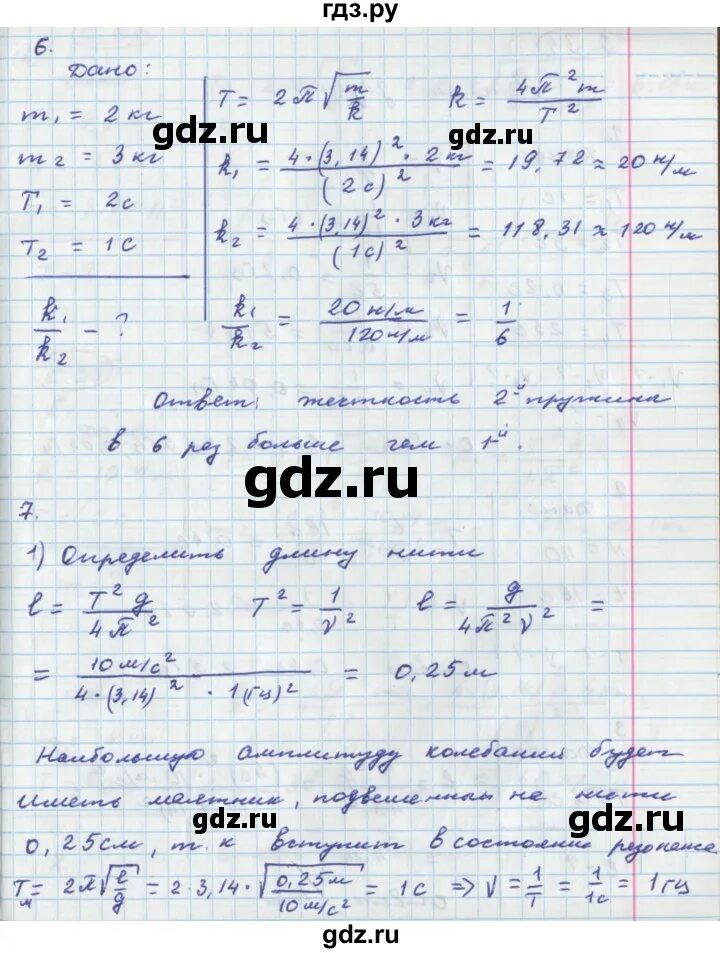 гдз.ру
6.
Дано:
m₁ = 2 кг
m₂ = 3 кг
T₁ = 2с
T₂ = 1с
k₁/k₂ - ?
T = 2π√(m/k) k = 4π²m/T²
k₁ = 4·(3,14)²·2 кг/(2с)² = 19,72 ≈ 20 н/м
k₂ = 4·(3,14)²·3 кг/(1с)² = 118,31 ≈ 120 н/м
k₁/k₂ = 20 н/м/120 н/м = 1/6
Ответ: жесткость 2й пружина
в 6 раз больше чем 1й.
7.
1) Определить длину нити
l = T²g/4π² T² = 1/ν² l = g/4π²ν² =
= 10 м/с²/4·(3,14)²·1(гц)² = 0,25 м
Наибольшую амплитуду колебаний будет
иметь маятник, подвешенный на нити
0,25 см, т.к вступит в состояние резонанса
Tм = 2π√(l/g) = 2·3,14·√(0,25 м/10 м/с²) = 1 с => ν = 1/T = 1/1с = 1 гц
gdz.ru
gdz.ru
gdz.ru
gdz.ru
gdz.ru
gdz.ru